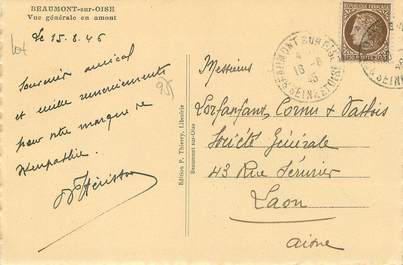 BEAUMONT-sur-OISE
Vue générale en amont
Le 15.8.46
Souvenir amical
et mille remerciements
pour votre marque de
sympathie.
Messieurs
Cornu & Vatbois
Société Générale
43 Rue Sérurier
Laon
Aisne
Edition P. Thierry, Librairie
Beaumont-sur-Oise
BEAUMONT SUR OISE
SEINE ET OISE